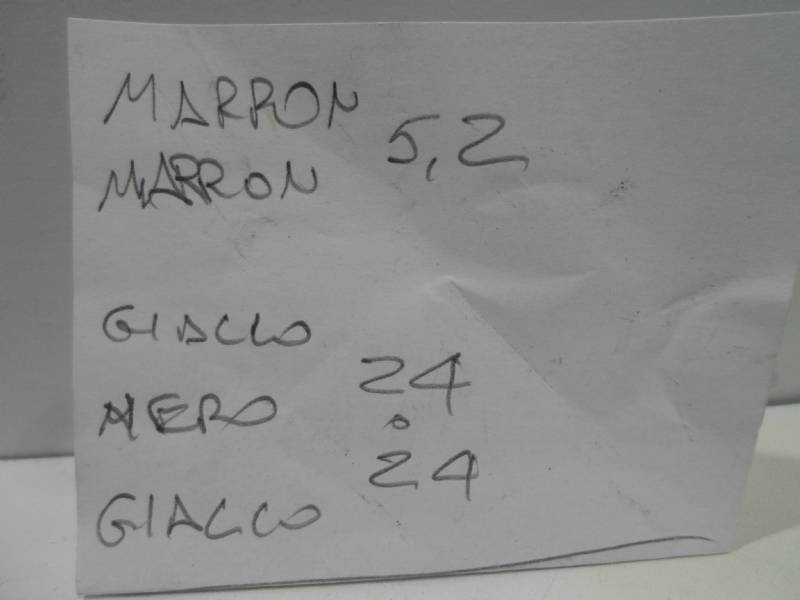 MARRON
5,2
MARRON
GIALLO
24
NERO
0
24
GIALLO